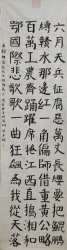 六月天兵征腐惡萬丈長纓要把鯤鵬
縛贛水那邊紅一角偏師借重黃公略
百萬工農齊踴躍席捲江西直搗湘和
鄂國際悲歌歌一曲狂飆為我從天落